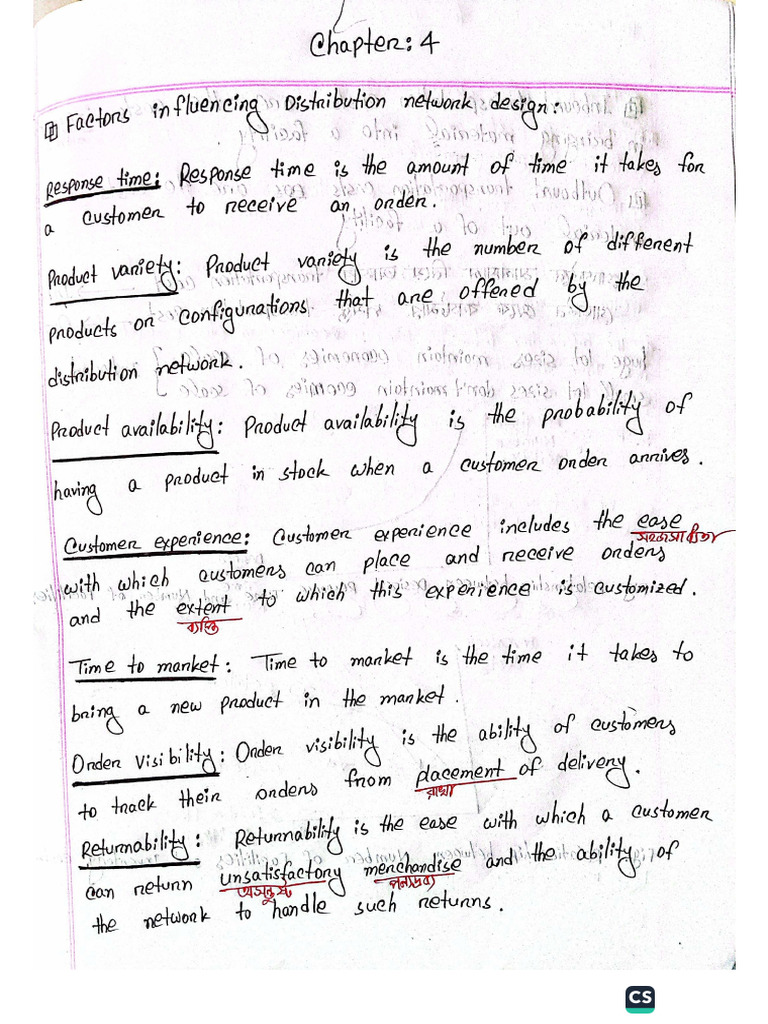 Chapter: 4
Factors influencing Distribution network design:
Response time: Response time is the amount of time it takes for
a customer to receive an order.
Product variety: Product variety is the number of different
products or configurations that are offered by the
distribution network.
Product availability: Product availability is the probability of
having a product in stock when a customer order arrives.
Customer experience: Customer experience includes the ease
with which customers can place and receive orders
and the extent to which this experience is customized.
ব্যাপ্তি
Time to market: Time to market is the time it takes to
bring a new product in the market.
Order visibility: Order visibility is the ability of customers
to track their orders from placement of delivery.
রাখা
Returnability: Returnability is the ease with which a customer
can return unsatisfactory merchandise and the ability of
অসন্তুষ্ট পন্যদ্রব্য
the network to handle such returns.
CS